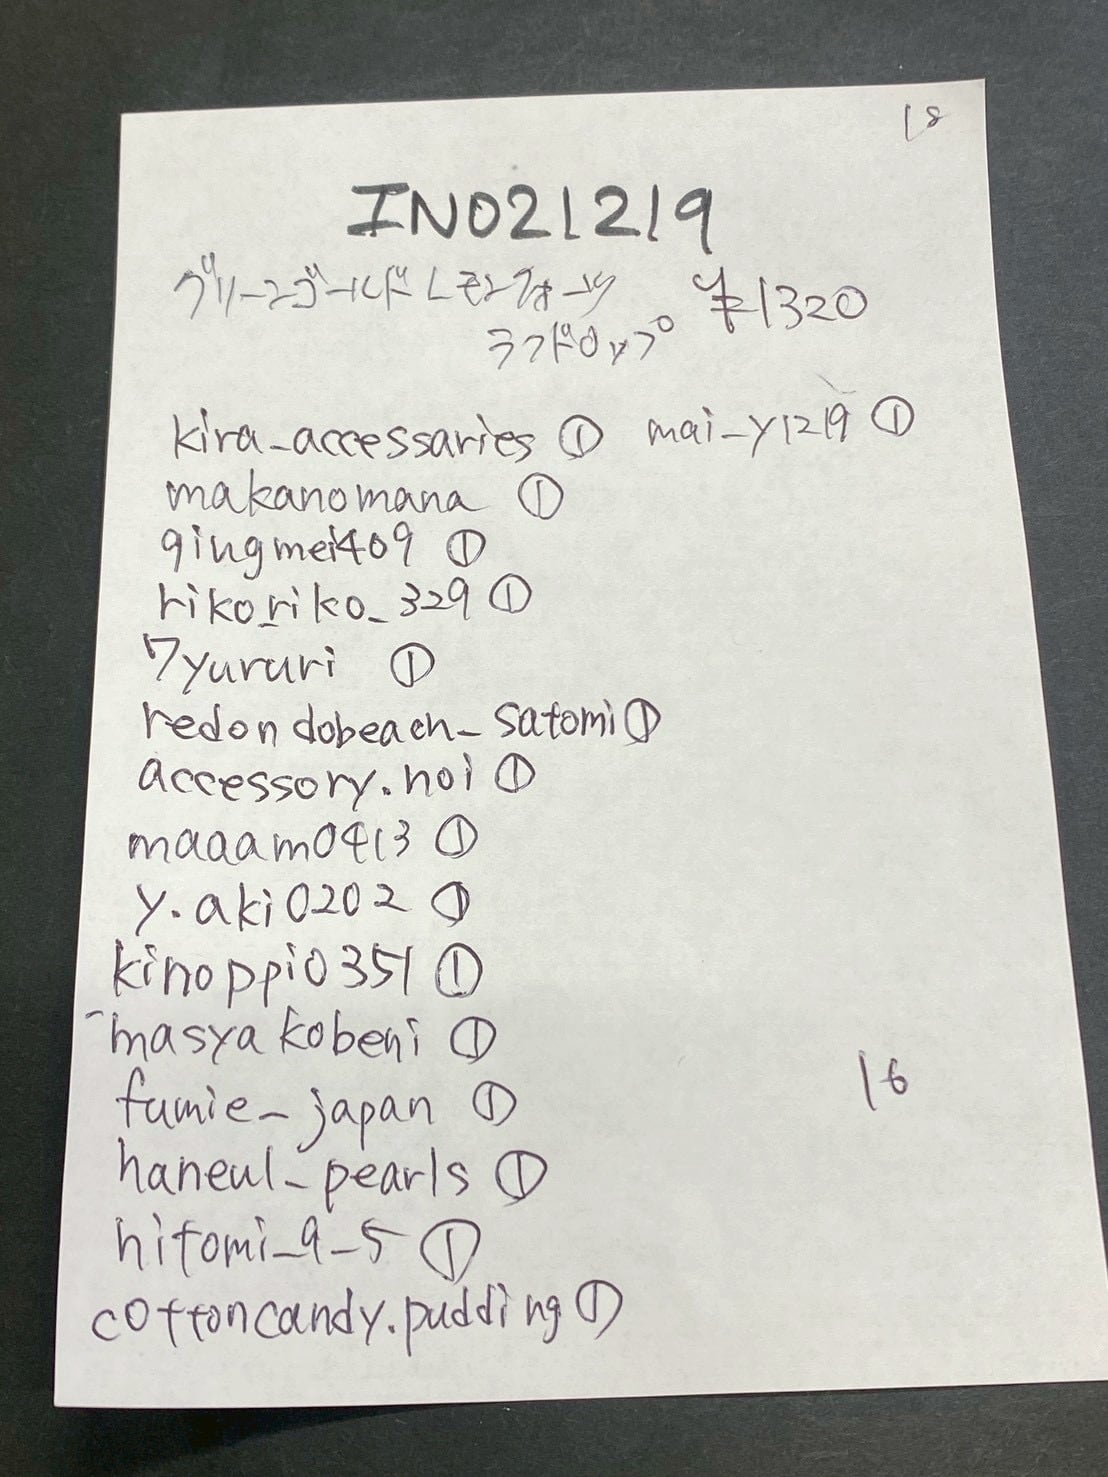 18
IN021219
グリーンゴールドレモンクォーツ ¥1320
ラフドロップ
kira_accessaries ① mai_y1219 ①
makanomana ①
qingmei409 ①
rikoriko_329 ①
7yururi ①
redondobeach_satomi ①
accessory.noi ①
maaam0413 ①
y.aki0202 ①
kinoppi0351 ①
masyakobeni ①
fumie_japan ①
16
haneul_pearls ①
hitomi_9_5 ①
cottoncandy.pudding ①